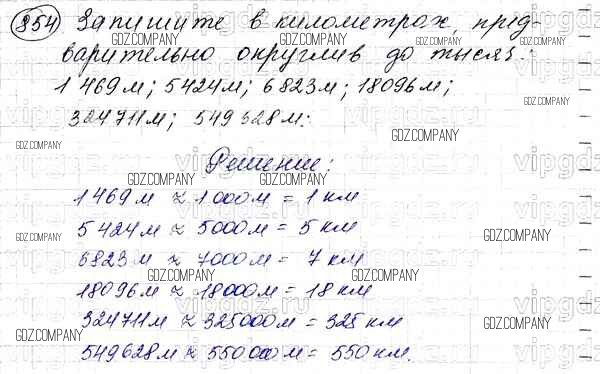 854 Запишите в километрах, пред-
варительно округлив до тысяч:
1 469 м; 5424 м; 6823 м; 18096 м;
324711 м; 549 628 м.
Решение:
1 469 м ≈ 1 000 м = 1 км
5 424 м ≈ 5000 м = 5 км
6823 м ≈ 7000 м = 7 км
18096 м ≈ 18000 м = 18 км
324711 м ≈ 325000 м = 325 км
549628 м ≈ 55000 м = 550 км.
GDZ.COMPANY
vipgdz.ru